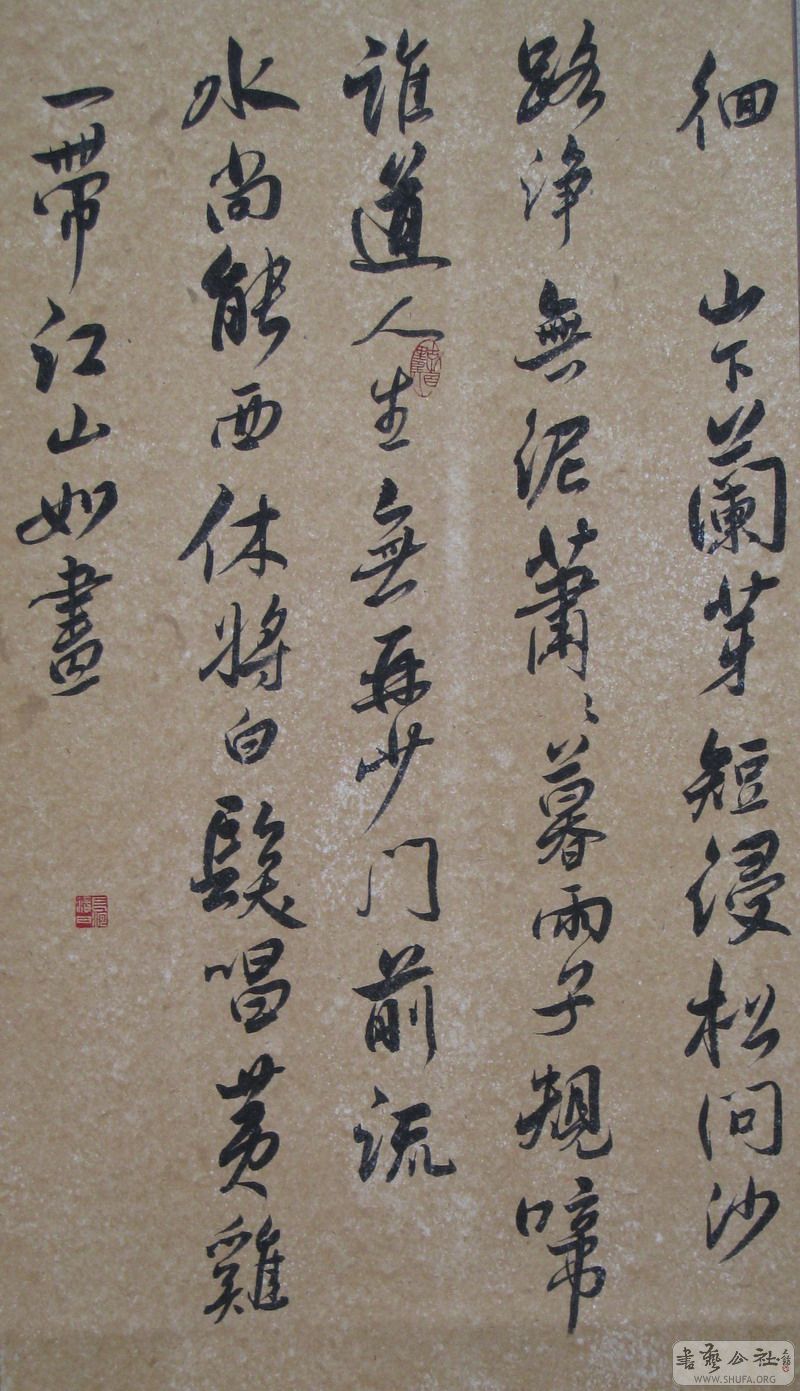 徊 山下蘭芽短浸松问沙
路浄無泥蕭々暮雨子規啼
誰道人生無再少门前流
水尚能西休將白髮唱黄雞
一帶江山如畫
書藝公社
WWW.SHUFA.ORG